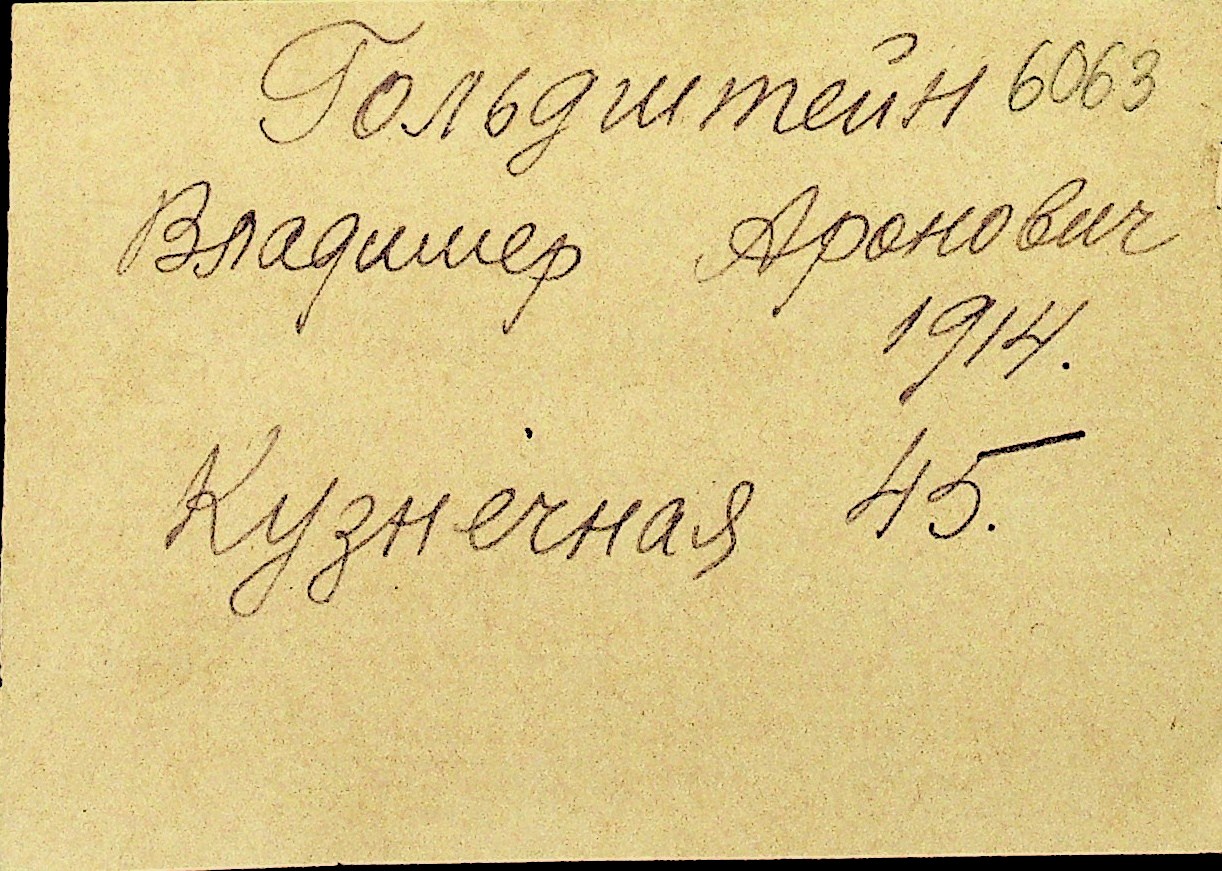 Гольдштейн 6063
Владимер Аронович
1914.
Кузнечная 45.